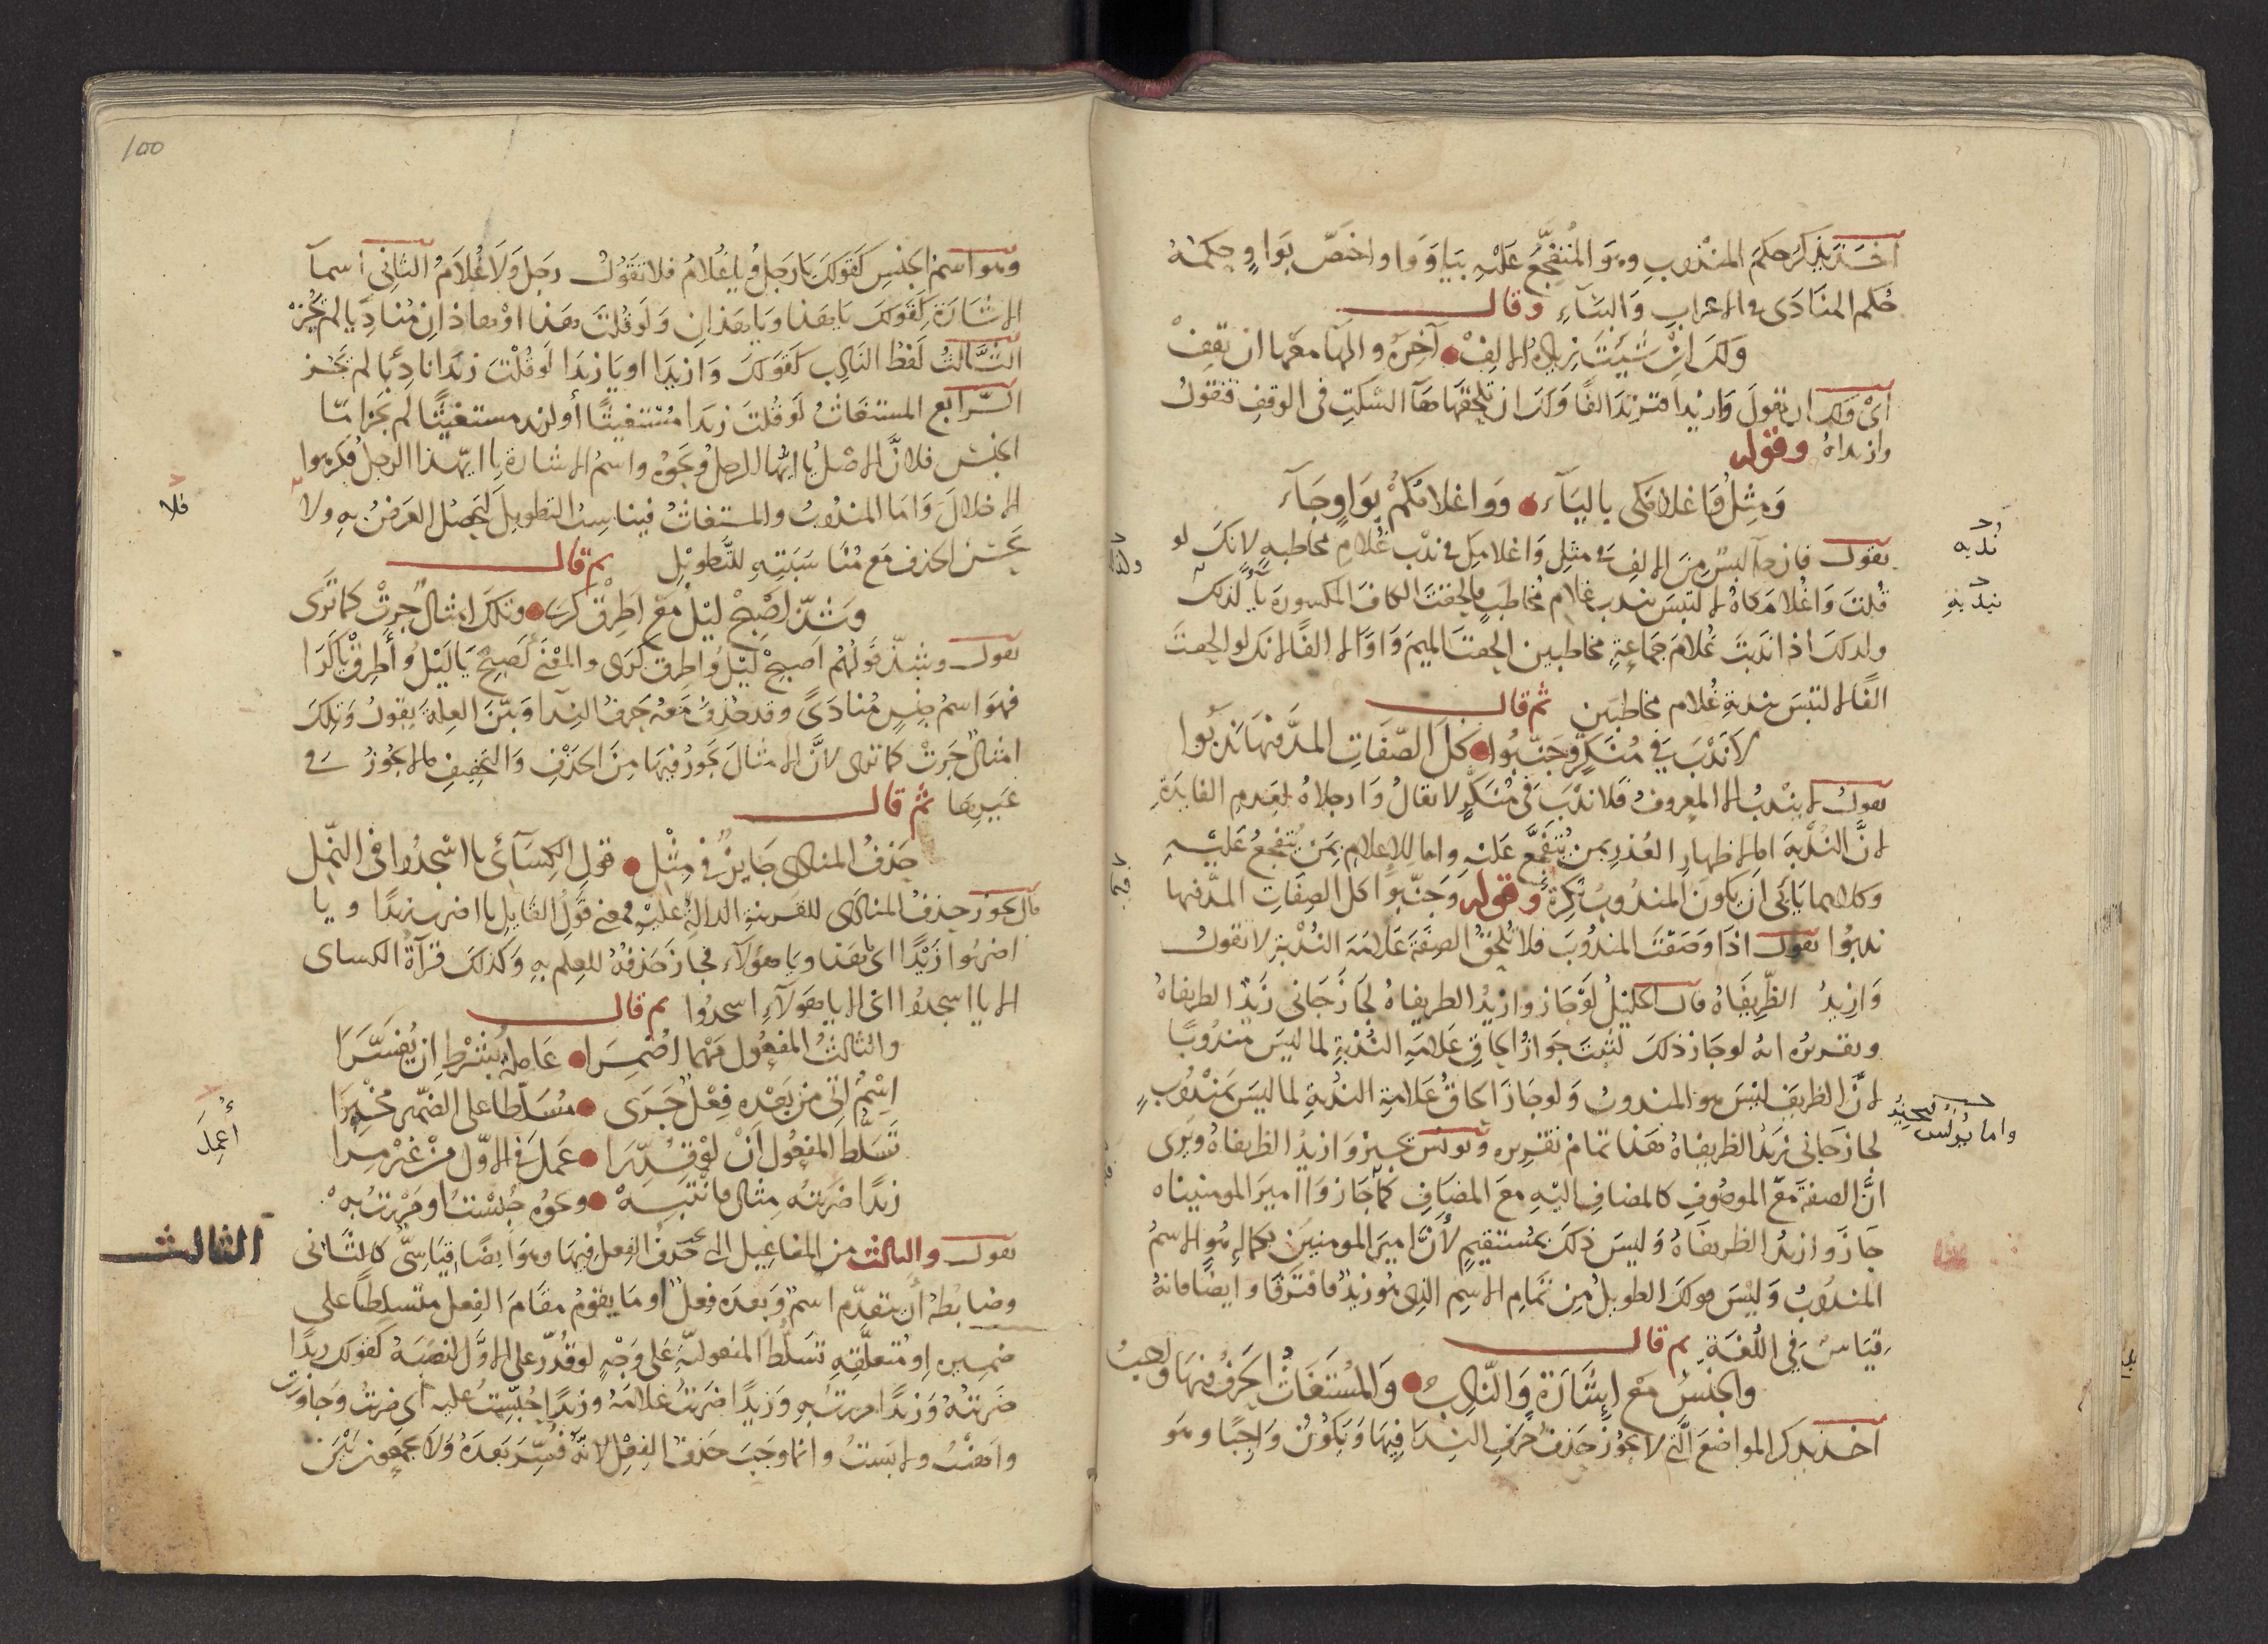 اخذ يذكر حكم المندوب وهو المتفجع عليه بيا ووا واختص بوا وحكمه
حكم المنادى في الاعراب والبناء وقال
ولك ان شئت زيادة الالف آخره والهآ معها ان تقف
اي ولك ان تقول وازيدا فتزيد الفا ولك ان تلحقها هآ السكت في الوقف فتقول
وازيداه وقوله
ومثل واغلامكي باليآء ووا غلامكم بواو جآء
يقول فان خيف لبس من الالف في مثل واغلامك في ندب غلام مخاطبة لانك لو
قلت واغلامكاه لالتبس بندب غلام مخاطب فالحقت الكاف المكسورة يآ لذلك
ولذلك اذا ندبت غلام جماعة مخاطبين الحقت الميم واوا لا الفا لانك لو الحقت
الفا لالتبس بندبة غلام مخاطبين ثم قال
لا ندب في منكر وجنبوا كل الصفات المد فيها ندبوا
يقول لا يندب الا المعروف فلا ندب في منكر لا يقال وارجلاه لعدم الفايدة
لان الندبة اما لاظهار العذر بمن يتفجع عليه واما للاعلام بمن يتفجع عليه
وكلاهما يابى ان يكون المندوب نكرة وقوله وجنبوا كل الصفات المد فيها
ندبوا يقول اذا وصفت المندوب فلا تلحق الصفة علامة الندبة لا تقول
وازيد الظريفاه قال الخليل لو جاز وازيد الظريفاه لجاز جاني زيد الظريفاه
وتقريره انه لو جاز ذلك لثبت جواز الحاق علامة الندبة لما ليس مندوبا
لان الظريف ليس هو المندوب ولو جاز الحاق علامة الندبة لما ليس بمندوب
لجاز جاني زيد الظريفاه هذا تمام تقريره ويونس يجيز وازيد الظريفاه ويرى
ان الصفة مع الموصوف كالمضاف اليه مع المضاف فكما جاز واامير المومنيناه
جاز وازيد الظريفاه وليس ذلك بمستقيم لان امير المومنين بكماله هو الاسم
المندوب وليس قولك الطويل من تمام الاسم الذي هو زيد فافترقا وايضا فانه
قياس في اللغة ثم قال
والجنس مع اشارة والنادب والمستغاث الحرف فيها واجب
اخذ يذكر المواضع التي لا يجوز حذف حرف الندا فيها ويكون واجبا وهو
ندبه
بندبة
واما يونس يجيز
100
وهو اسم الجنس كقولك يا رجل ويا غلام فلا تقول رجل ولا غلام الثاني اسمآ
الاشارة كقولك يا هذا ويا هذان ولو قلت هذا او هاذان مناديا لم يجز
الثالث لفظ النادب كقولك وازيدا او يا زيدا لو قلت زيدا نادبا لم يجز
الرابع المستغاث لو قلت زيدا مستغيثا او لزيد مستغيثا لم يجز اما
الجنس فلان الاصل يا ايها الرجل ونحوه واسم الاشارة يا ايهذا الرجل فكرهوا
الاخلال واما المندوب والمستغاث فيناسب التطويل ليحصل الغرض به ولا
يحسن الحذف مع مناسبته للتطويل ثم قال
وشذ اصبح ليل مع اطرق كرا وتلك امثال جرت كما ترى
يقول وشذ قولهم اصبح ليل واطرق كرى والمعنى اصبح يا ليل واطرق يا كرا
فهو اسم جنس منادى وقد حذف معه حرف الندا وبين العلة بقوله وتلك
امثال جرت كما ترى لان الامثال يجوز فيها من الحذف والتخفيف ما لا يجوز في
غيرها ثم قال
حذف المنادى جايز في مثل قول الكسآئي يا اسجدوا في النمل
قال يجوز حذف المنادى للقرينة الدالة عليه فمعنى قول القايل يا اضرب زيدا ويا
اضربوا زيدا اي يا هذا ويا هؤلآء فجاز حذفه للعلم به وكذلك قرآة الكساى
الا يا اسجدوا اي الا يا هولآء اسجدوا ثم قال
والثالث المفعول مهما اضمرا عامله بشرط ان يفسرا
اسم اتى من بعده فعل جرى مسلطا على الضمير مخبرا
تسلط المفعول ان لو قدرا عمل في الاول من غير مرا
زيدا ضربته مثال فانتبه ونحوه حبست او مررت به
يقول والثالث من المفاعيل التي يحذف الفعل فيها وهو ايضا قياسي كالثاني
وضابطه ان يتقدم اسم وبعده فعل او ما يقوم مقام الفعل متسلطا على
ضميره او متعلقه تسلط المفعولية على وجه لو قدر على الاول لنصبه كقولك زيدا
ضربته وزيدا مررت به وزيدا ضربت غلامه وزيدا حبست عليه اي ضربت وجاوزت
واهنت ولابست وانما وجب حذف الفعل لانه فسر بعده ولا يجمعون بين
فلا
اعمل
الثالث